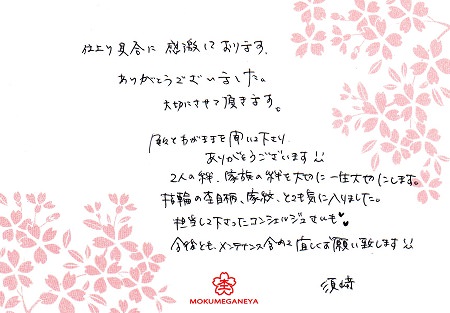 仕上り具合に感激しております。
ありがとうございました。
大切にさせて頂きます。
私どものわがままを聞いて下さり
ありがとうございます!!
2人の絆、家族の絆を大切に一生大切にします。
指輪の杢目柄、家紋、とても気に入りました。
担当して下さったコンシェルジュさんも♥♥
今後とも、メンテナンス含めて宜しくお願い致します!!
須崎
MOKUMEGANEYA